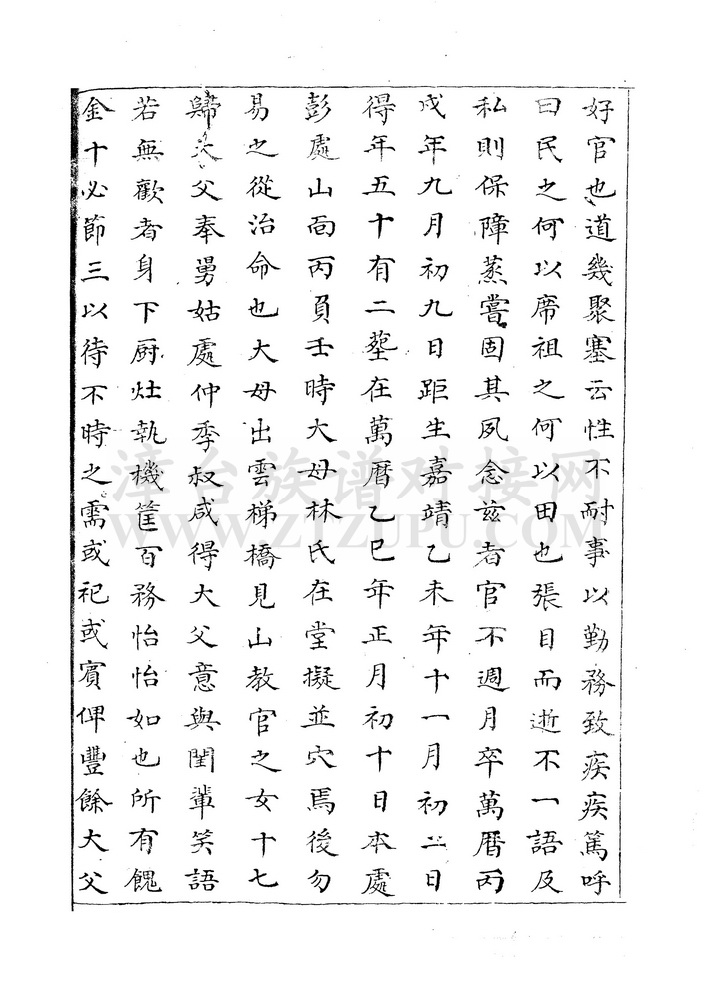 好官也道幾聚塞云性不耐事以勤務致疾疾篤呼
曰民之何以席祖之何以田也張目而逝不一語及
私則保障蒸嘗固其夙念茲者官不週月卒萬曆丙
戌年九月初九日距生嘉靖乙未年十一月初二日
得年五十有二塟在萬曆乙巳年正月初十日本處
彭處山面丙負壬時大母林氏在堂擬並穴焉後勿
易之從治命也大母出雲梯橋見山教官之女十七
歸大父奉舅姑處仲季叔咸得大父意與閨輩笑語
若無歡者身下厨灶執機筐百務怡怡如也所有餽
金十必節三以待不時之需或祀或賓俾豐餘大父
漳台族谱对接网
WWW.ZTZUPU.COM